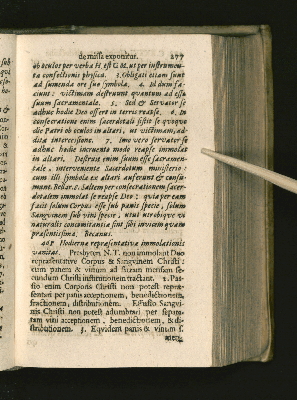 de missa exponitur. 277
ob oculos per verba H. est C. M. ut per instrumen-
ta consectionis physica. 3. Obligati etiam sunt
ad sumenda ore suo symbola. 4. Id dum fa-
ciunt: victimam destruunt quantum ad esse
suum sacramentale. 5. Sed & Servator se
adhuc hodie Deo offert in terris reapse. 6. In
consecratione enim sacerdotali sistit se quoque
die Patri ob oculos in altari, ut victimam, ad-
dita intercessione. 7. Imo vero servator se
adhuc hodie incruento modo reapse immolat
in altari. Destruit enim suum esse sacramen-
tale, interveniente Sacerdotum ministerio:
cum illi symbola ex altari auferunt & consu-
munt. Bellar. c. Saltem per consecrationem sacer-
dotalem immolat se reapse Deo; quia per eam
facit solum Corpus esse sub panis specie, solum
Sanguinem sub vini specie, utut utrobique vi
naturalis concomitantia sint sibi invicem quam
præsentissima. Becanus.
401 Hodierna repræsentativa immolationis
vanitas. Presbyteri N. T. non immolant Duo
repræsentative Corpus & Sanguinem Christi:
cum panem & vinum ad sacram mensam se-
cundum Christi institutionem tractant. 1. Pas-
sio enim Corporis Christi non potest repræ-
sentari per panis acceptionem, benedictionem,
fractionem, distributionem. Effusio Sangui-
nis Christi non potest adumbrari per separa-
tam vini acceptionem, benedictionem, & di-
stributionem. 3. Eqvidem panis & vinum s.